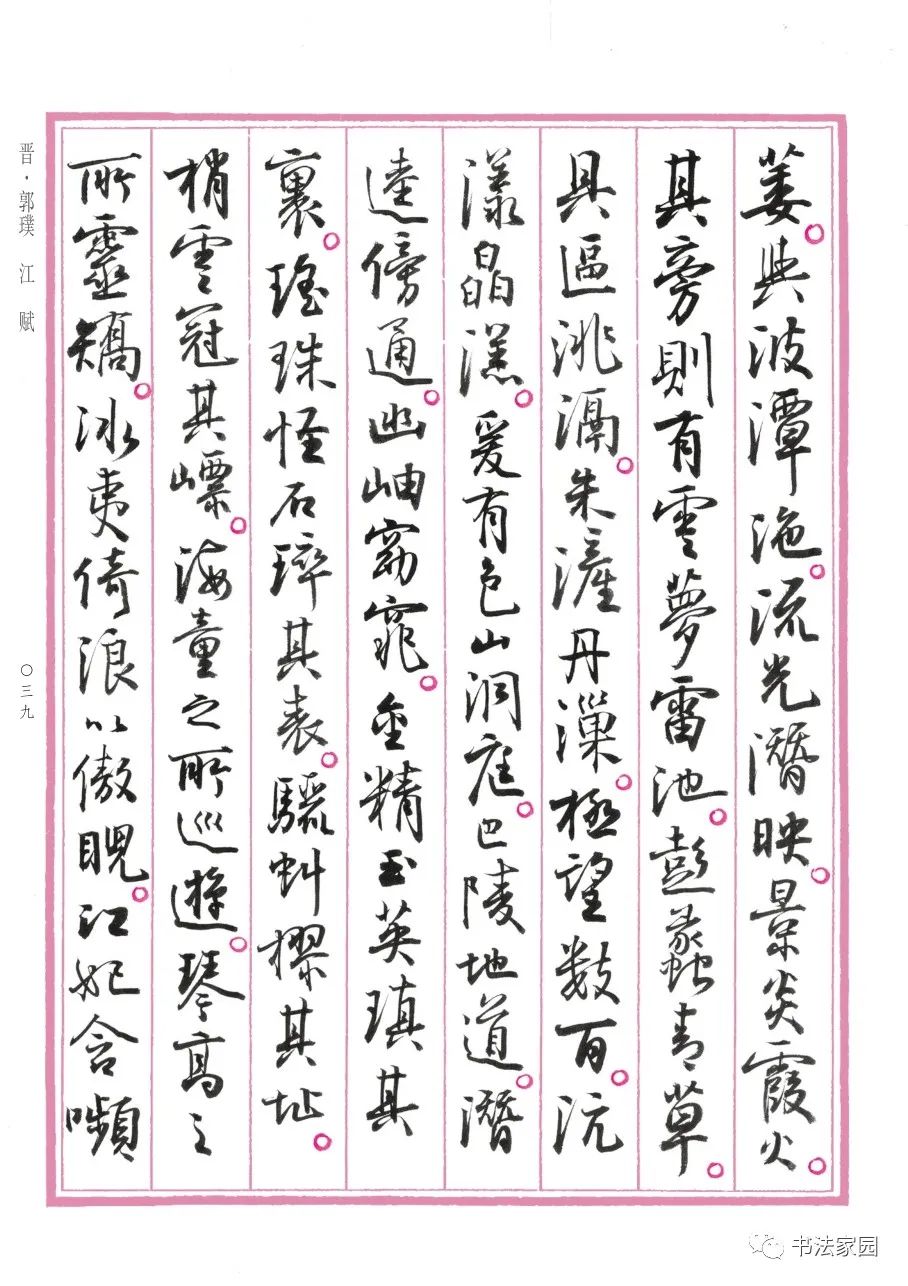 萎。與波潭沲。流光潛映。景炎霞火。
其旁則有雲夢雷池。彭蠡青草。
具區洮滆。朱滻丹漅。極望數百。沆
漾皛溔。爰有包山洞庭。巴陵地道。潛
逵傍通。幽岫窈窕。金精玉英瑱其
裏。瑤珠怪石琗其表。驪虯摎其址。
梢雲冠其㟽。海童之所巡遊。琴高之
所靈矯。冰夷倚浪以傲睨。江妃含嚬
晋·郭璞 江赋
〇三九
书法家园